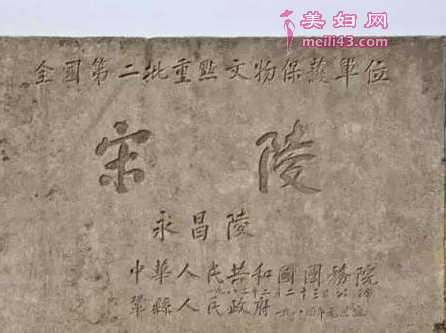 美妇网
meili43.com
全國第二批重點文物保護單位
宋陵
永昌陵
中華人民共和國國務院
一九八二年二月二十三日公佈
鞏縣人民政府